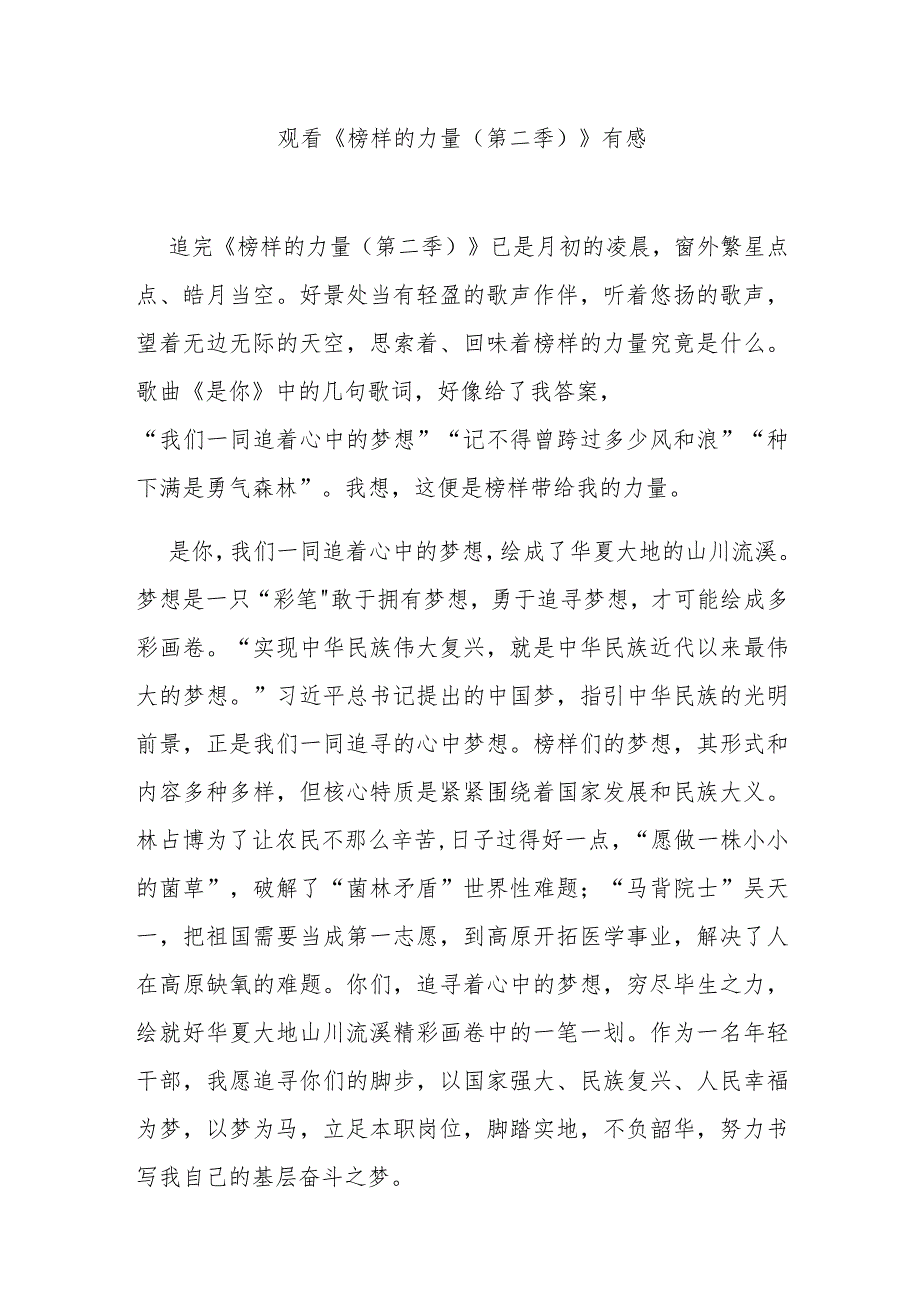 观看《榜样的力量（第二季）》有感
追完《榜样的力量（第二季）》已是月初的凌晨，窗外繁星点
点、皓月当空。好景处当有轻盈的歌声作伴，听着悠扬的歌声，
望着无边无际的天空，思索着、回味着榜样的力量究竟是什么。
歌曲《是你》中的几句歌词，好像给了我答案，
“我们一同追着心中的梦想”“记不得曾跨过多少风和浪”“种
下满是勇气森林”。我想，这便是榜样带给我的力量。
是你，我们一同追着心中的梦想，绘成了华夏大地的山川流溪。
梦想是一只“彩笔"敢于拥有梦想，勇于追寻梦想，才可能绘成多
彩画卷。“实现中华民族伟大复兴，就是中华民族近代以来最伟
大的梦想。”习近平总书记提出的中国梦，指引中华民族的光明
前景，正是我们一同追寻的心中梦想。榜样们的梦想，其形式和
内容多种多样，但核心特质是紧紧围绕着国家发展和民族大义。
林占博为了让农民不那么辛苦,日子过得好一点，“愿做一株小小
的菌草”，破解了“菌林矛盾”世界性难题；“马背院士”吴天
一，把祖国需要当成第一志愿，到高原开拓医学事业，解决了人
在高原缺氧的难题。你们，追寻着心中的梦想，穷尽毕生之力，
绘就好华夏大地山川流溪精彩画卷中的一笔一划。作为一名年轻
干部，我愿追寻你们的脚步，以国家强大、民族复兴、人民幸福
为梦，以梦为马，立足本职岗位，脚踏实地，不负韶华，努力书
写我自己的基层奋斗之梦。